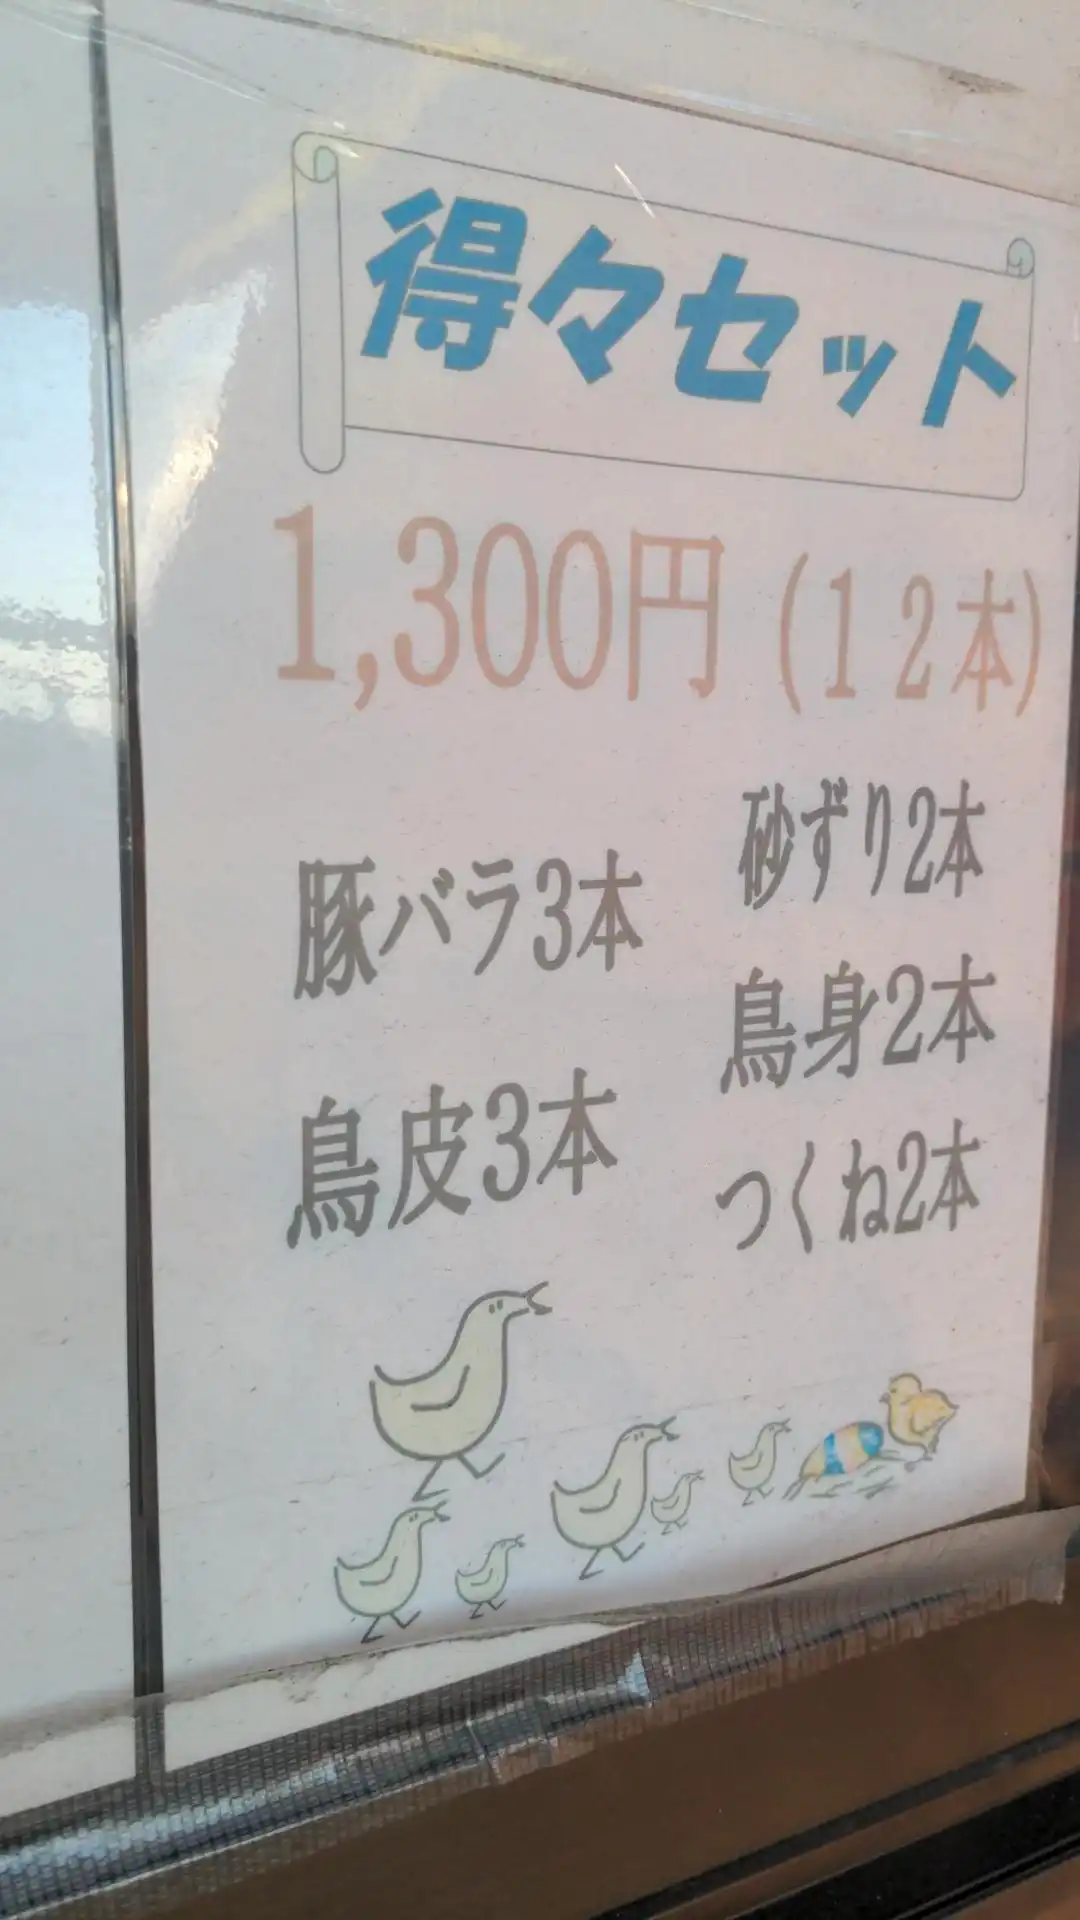 得々セット
1,300円(12本)
豚バラ3本
鳥皮3本
砂ずり2本
鳥身2本
つくね2本